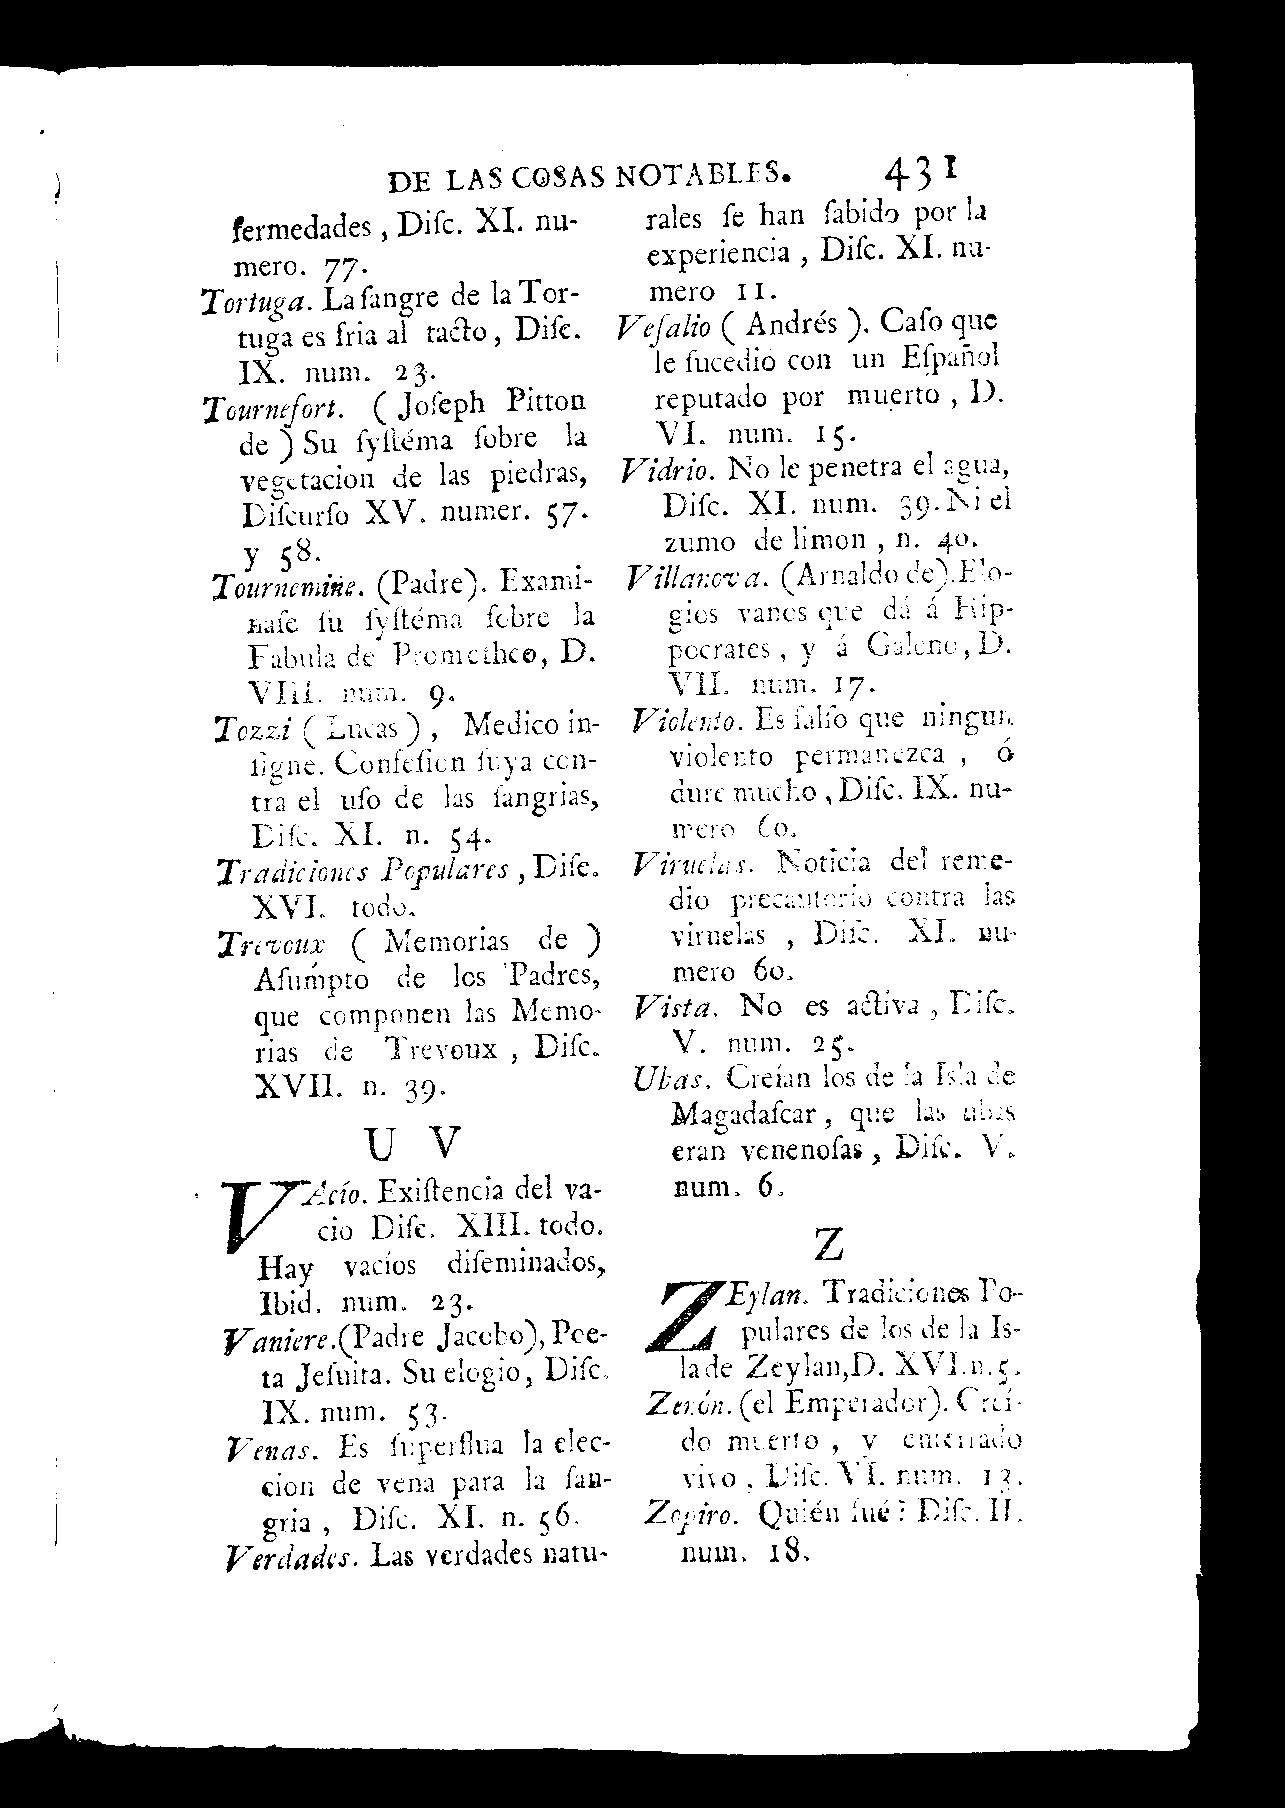 DE LAS COSAS NOTABLES. 431
fermedades, Diſc. XI. nu-
mero. 77.
Tortuga. La ſangre de la Tor-
tuga es fria al tacto, Diſc.
IX. num. 23.
Tournefort. (Joſeph Pitton
de) Su ſyſtéma ſobre la
vegetacion de las piedras,
Diſcurſo XV. numer. 57.
y 58.
Tournemine. (Padre). Exami-
naſe ſu ſyſtéma ſobre la
Fabula de Prometheo, D.
VIII. num. 9.
Tozzi (Lucas), Medico in-
ſigne. Confeſion ſuya con-
tra el uſo de las ſangrias,
Diſc. XI. n. 54.
Tradiciones Populares, Diſc.
XVI. todo.
Trevoux (Memorias de)
Aſumpto de los Padres,
que componen las Memo-
rias de Trevoux, Diſc.
XVII. n. 39.
U V
VAcío. Exiſtencia del va-
cio Diſc. XIII. todo.
Hay vacíos diſeminados,
Ibid. num. 23.
Vaniere. (Padre Jacobo), Poe-
ta Jeſuita. Su elogio, Diſc.
IX. num. 53.
Venas. Es ſuperflua la elec-
cion de vena para la ſan-
gria, Diſc. XI. n. 56.
Verdades. Las verdades natu-
rales ſe han ſabido por la
experiencia, Diſc. XI. nu-
mero 11.
Veſalio (Andrés). Caſo que
le ſucedio con un Eſpañol
reputado por muerto, D.
VI. num. 15.
Vidrio. No le penetra el agua,
Diſc. XI. num. 39. Ni el
zumo de limon, n. 40.
Villanova. (Arnaldo de). Elo-
gios vanos que dá á Hip-
pocrates, y á Galeno, D.
VII. num. 17.
Violento. Es falſo que ningun
violento permanezca, ó
dure mucho, Diſc. IX. nu-
mero 60.
Viruelas. Noticia del reme-
dio precautorio contra las
viruelas, Diſc. XI. nu-
mero 60.
Vista. No es activa, Diſc.
V. num. 25.
Ubas. Creían los de la Isla de
Magadaſcar, que las ubas
eran venenoſas, Diſc. V.
num. 6.
Z
ZEylan. Tradiciones Po-
pulares de los de la Is-
la de Zeylan, D. XVI. n. 5.
Zenón. (el Emperador). Creí-
do muerto, y enterrado
vivo, Diſc. VI. num. 13.
Zopiro. Quién fué? Diſc. II.
num. 18.